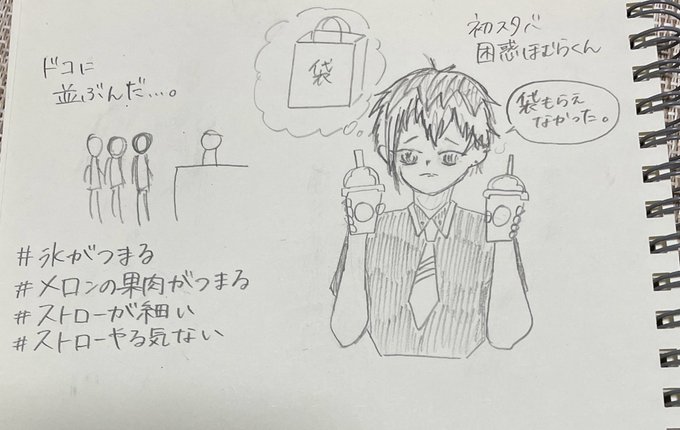 初スタバ
困惑ほむらくん
袋
袋もらえ
なかった。
ドコに
並ぶんだ…。
#氷がつまる
#メロンの果肉がつまる
#ストローが細い
#ストローやる気ない